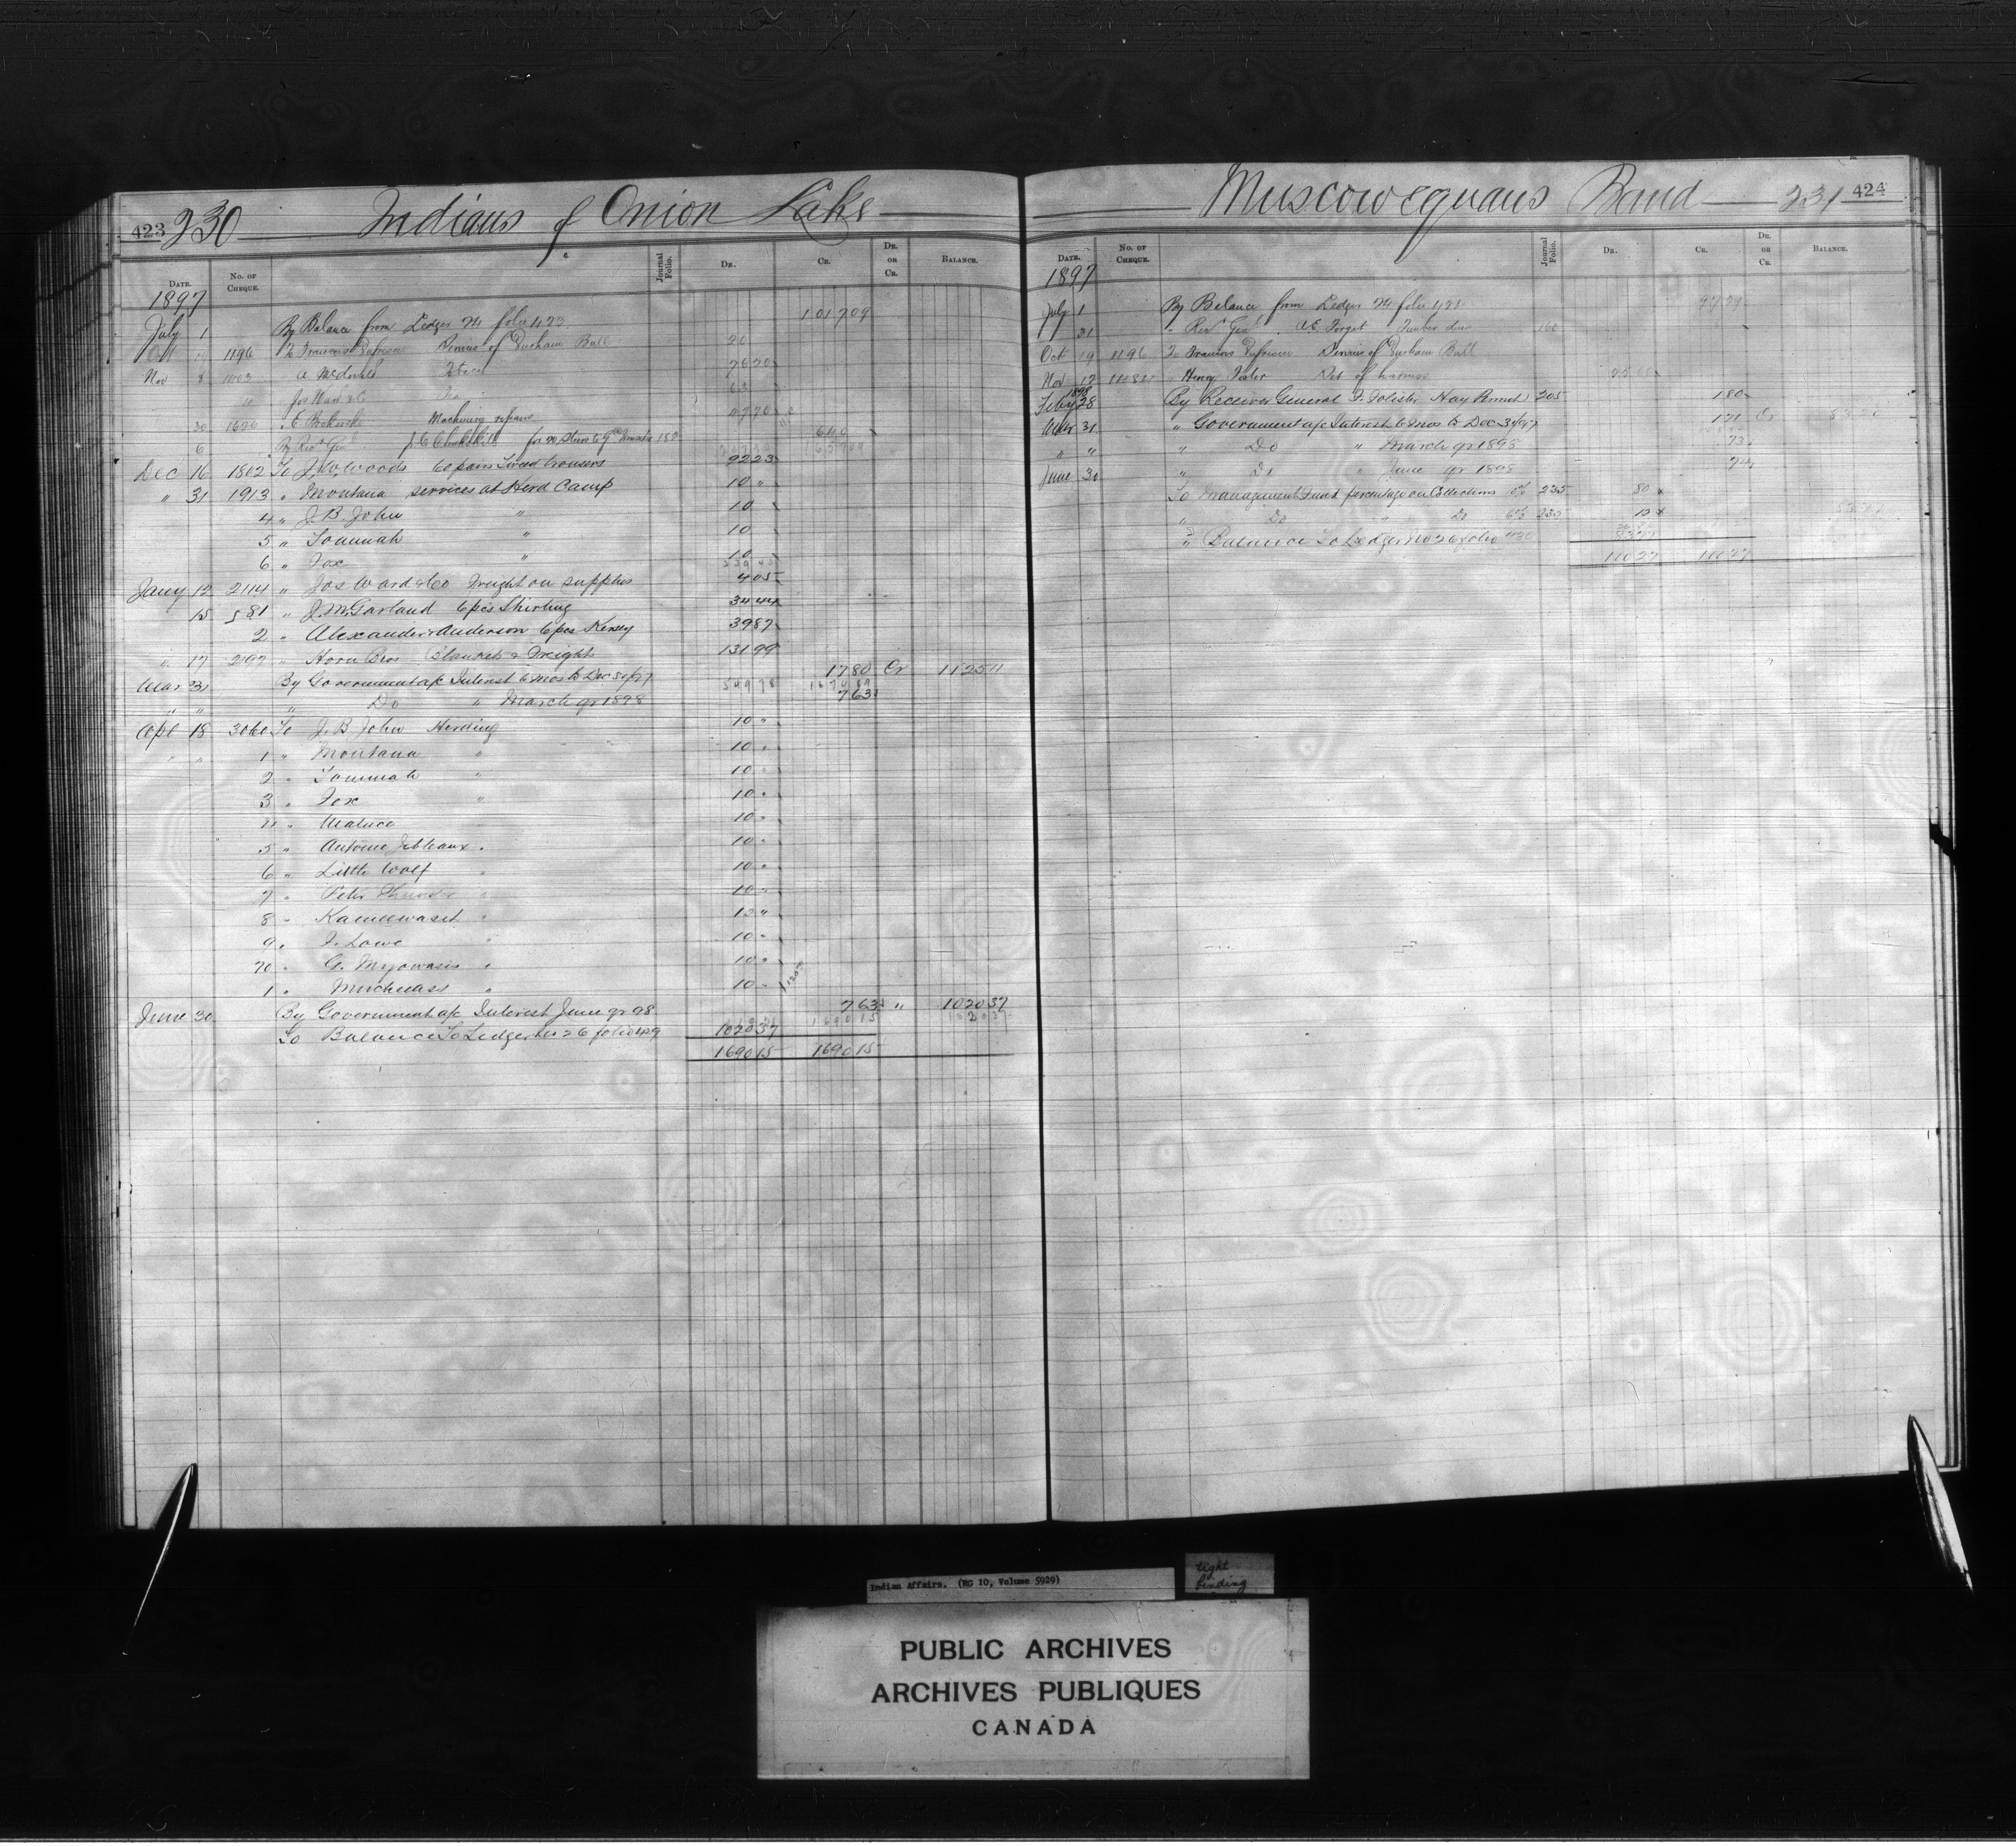 423 230 Indians of Onion Lake
DATE. No. OF CHEQUE. Journal Folio. DR. CR. DR. OR CR. BALANCE.
1897
July 1 By Balance from Ledger folio 423 1017 09
Oct 19 1196 To Francis Dufresne Services of Durham Bull 20
Nov 8 1403 A McDonald Tobacco 76 20
Jos Ward & Co Tea 63
30 1620 Machinery repairs
6 By Recr Genl 640
Dec 16 1802 To J.W. Woods 60 pairs Tweed trousers 92 23
" 31 1913 " Montana services at Herd Camp 10 "
4 " J.B. John " 10
5 " Tommah " 10
6 " Fox " 10
Jany 12 2114 " Jos Ward & Co Freight on supplies 4 05
15 581 " J.M. Garland 6 pcs Shirting 34 44
2 " Alexander & Anderson 6 pcs Kersey 39 87
" 17 2197 " Horn Bros Blankets & Freight 131 99
Mar 31 By Government a/c Interest 6 mos to Dec 31/97 17 80 Cr 1125 11
" " " Do " March qr 1898 7 63
Apl 18 3060 To J.B. John Herding 10 "
" " 1 " Montana " 10 "
2 " Tommah " 10 "
3 " Fox " 10 "
4 " 10 "
5 " Antoine 10 "
6 " Little Wolf " 10 "
7 " Peter Thunder " 10 "
8 " Kameewaset " 10 "
9 " F. Lowe " 10 "
70 " G. Myowasis " 10 "
1 " 10 "
June 30 By Government a/c Interest June qr 98 7 63 " 1020 37
To Balance To Ledger No 26 folio 429 1020 37
1690 15 1690 15
Muscowequans Band 231 424
DATE. No. OF CHEQUE. Journal Folio. DR. CR. DR. OR CR. BALANCE.
1897
July 1 By Balance from Ledger folio
31 " Recr Genl A.E. Forget Timber dues 160
Oct 19 1196 To Francis Dufresne Services of Durham Bull
Nov 12 " Henry Set of harness
1898
Feby 28 By Receiver General Hay Permit 205 1 80
Mar 31 " Government a/c Interest 6 mos to Dec 31/97 1 71 Cr
" " " Do " March qr 1898 73
June 30 " Do " June qr 1898 74
To Management Fund percentage on Collections 235 80
" Do " Do 6% 235 10
" Balance To Ledger No 26 folio 430
110 27 110 27
Indian Affairs. (RG 10, Volume 5929)
tight
binding
PUBLIC ARCHIVES
ARCHIVES PUBLIQUES
CANADA